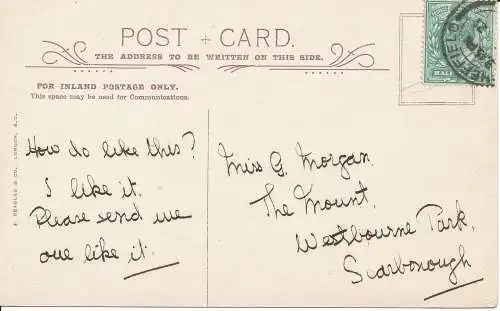 POST CARD.
THE ADDRESS TO BE WRITTEN ON THIS SIDE.
FOR INLAND POSTAGE ONLY.
This space may be used for Communications.
How do like this?
I like it.
Please send me
one like it.
Miss G. Morgan.
The Mount.
Westbourne Park,
Scarborough
J. BEAGLES & CO., LONDON, E.C.
HALF